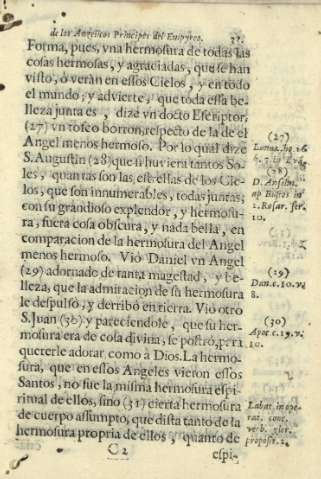 de los Angelicos Principes del Empyreo.
Forma, pues, vna hermosura de todas las
cosas hermosas, y agraciadas, que se han
visto, ò veràn en essos Cielos, y en todo
el mundo; y advierte, que toda essa be-
lleza junta es, dize vn docto Escriptor,
(27) vn tosco borron, respecto de la de el
Angel menos hermoso. Por lo qual dize
S. Augustin (28) que si huviera tantos So-
les, quantas son las estrellas de los Cie-
los, que son innumerables, todas juntas,
con su grandioso explendor, y hermosu-
ra, fuera cosa obscura, y nada bella, en
comparacion de la hermosura del Angel
menos hermoso. Viò Daniel vn Angel
(29) adornado de tanta magestad, y be-
lleza, que la admiracion de su hermosura
le despulsò, y derribò en tierra. Viò otro
S. Juan (30) y pareciendole, que su her-
mosura era de cosa divina, se postrò, para
quererle adorar como à Dios. La hermo-
sura, que en essos Angeles vieron essos
Santos, no fue la misma hermosura espi-
ritual de ellos, sino (31) cierta hermosura
de cuerpo assumpto, que dista tanto de la
hermosura propria de ellos, quanto de
C 2
espi-
(27)
(28)
D.
2. Rosar. ser.
10.
(29)
Dan. c. 10. v.
8.
(30)
Apoc. c. 19. v.
10.
Labat. in ope-
rat. conc.
verb. glor.
proposit. 2.